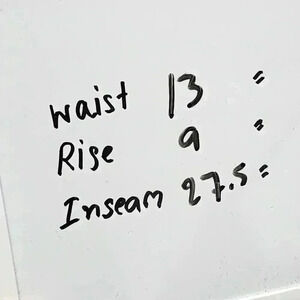 waist 13 "
Rise 9 "
Inseam 27.5 "